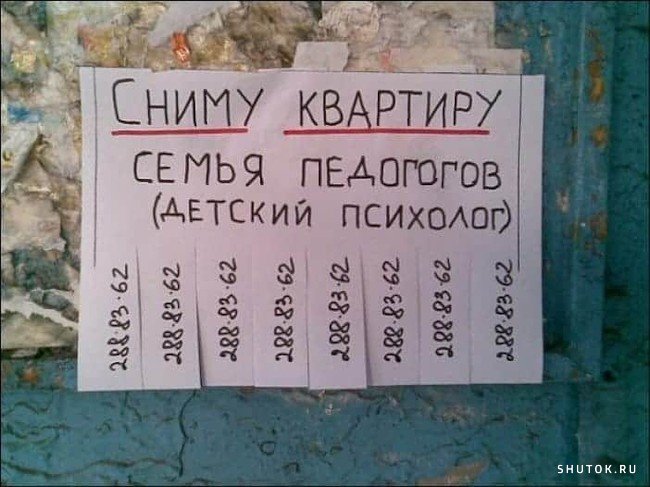 Сниму квартиру
семья педогогов
(детский психолог)
288.83.62
288.83.62
288.83.62
288.83.62
288.83.62
288.83.62
288.83.62
288.83.62
SHUTOK.RU